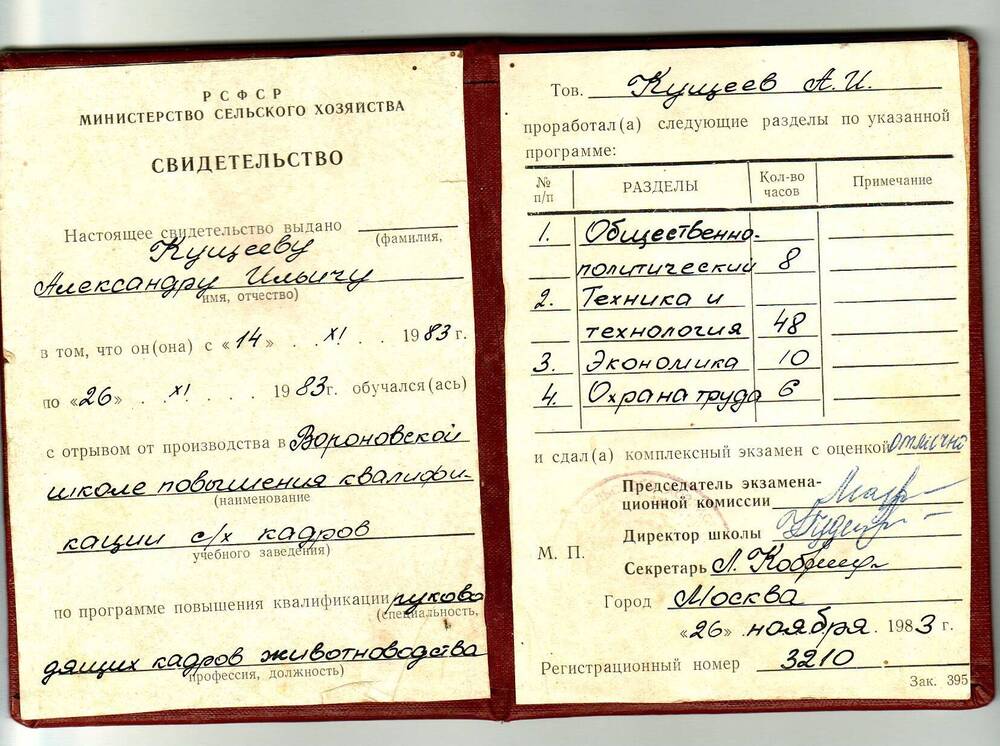 РСФСР
МИНИСТЕРСТВО СЕЛЬСКОГО ХОЗЯЙСТВА
СВИДЕТЕЛЬСТВО
Настоящее свидетельство выдано
(фамилия,
Кущееву
Александру Ильичу
имя, отчество)
в том, что он(она) с «14» . . XI . . . 1983 г.
по «26» . . XI . . . . . 1983г. обучался(ась)
с отрывом от производства в Вороновской
школе повышения квалифи-
(наименование
кации с/х кадров
учебного заведения)
по программе повышения квалификации руково
(специальность,
дящих кадров животноводства
профессия, должность)
Тов. Кущеев А.И.
проработал(а) следующие разделы по указанной
программе:
№ п/п РАЗДЕЛЫ Кол-во часов Примечание
1. Общественно-
политический 8
2. Техника и
технология 48
3. Экономика 10
4. Охрана труда 6
и сдал(а) комплексный экзамен с оценкой отлично
Председатель экзамена-
ционной комиссии
Директор школы
М. П.
Секретарь
Город Москва
«26» ноября . 1983 г.
Регистрационный номер 3210
Зак. 395